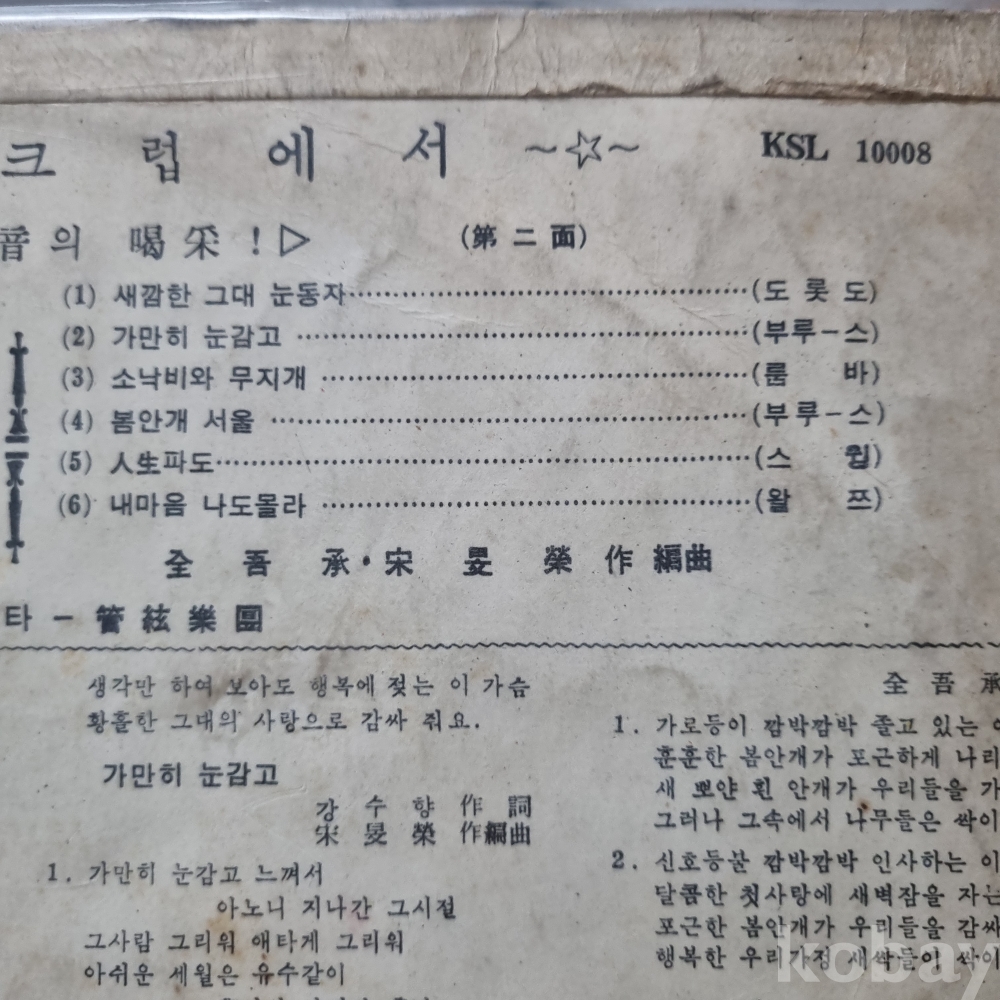 크 럽 에 서 ～☆～ KSL 10008
音의 喝采!▷ (第二面)
(1) 새깜한 그대 눈동자………(도롯도)
(2) 가만히 눈감고………(부루－스)
(3) 소낙비와 무지개………(룸 바)
(4) 봄안개 서울………(부루－스)
(5) 人生파도………(스 윙)
(6) 내마음 나도몰라………(왈 쯔)
全吾承・宋旻榮作編曲
타－管絃樂團
생각만 하여 보아도 행복에 젖는 이 가슴
황홀한 그대의 사랑으로 감싸 줘요.
가만히 눈감고
강수향 作詞
宋旻榮 作編曲
1. 가만히 눈감고 느껴서
아노니 지나간 그시절
그사람 그리워 애타게 그리워
아쉬운 세월은 유수같이
全吾承
1. 가로등이 깜박깜박 졸고 있는
훈훈한 봄안개가 포근하게 나리
새 뽀얀 흰 안개가 우리들을 가
그러나 그속에서 나무들은 싹이
2. 신호등불 깜박깜박 인사하는 이
달콤한 첫사랑에 새벽잠을 자는
포근한 봄안개가 우리들을 감싸
행복한 우리가정 새싹들이 싹이
kobay